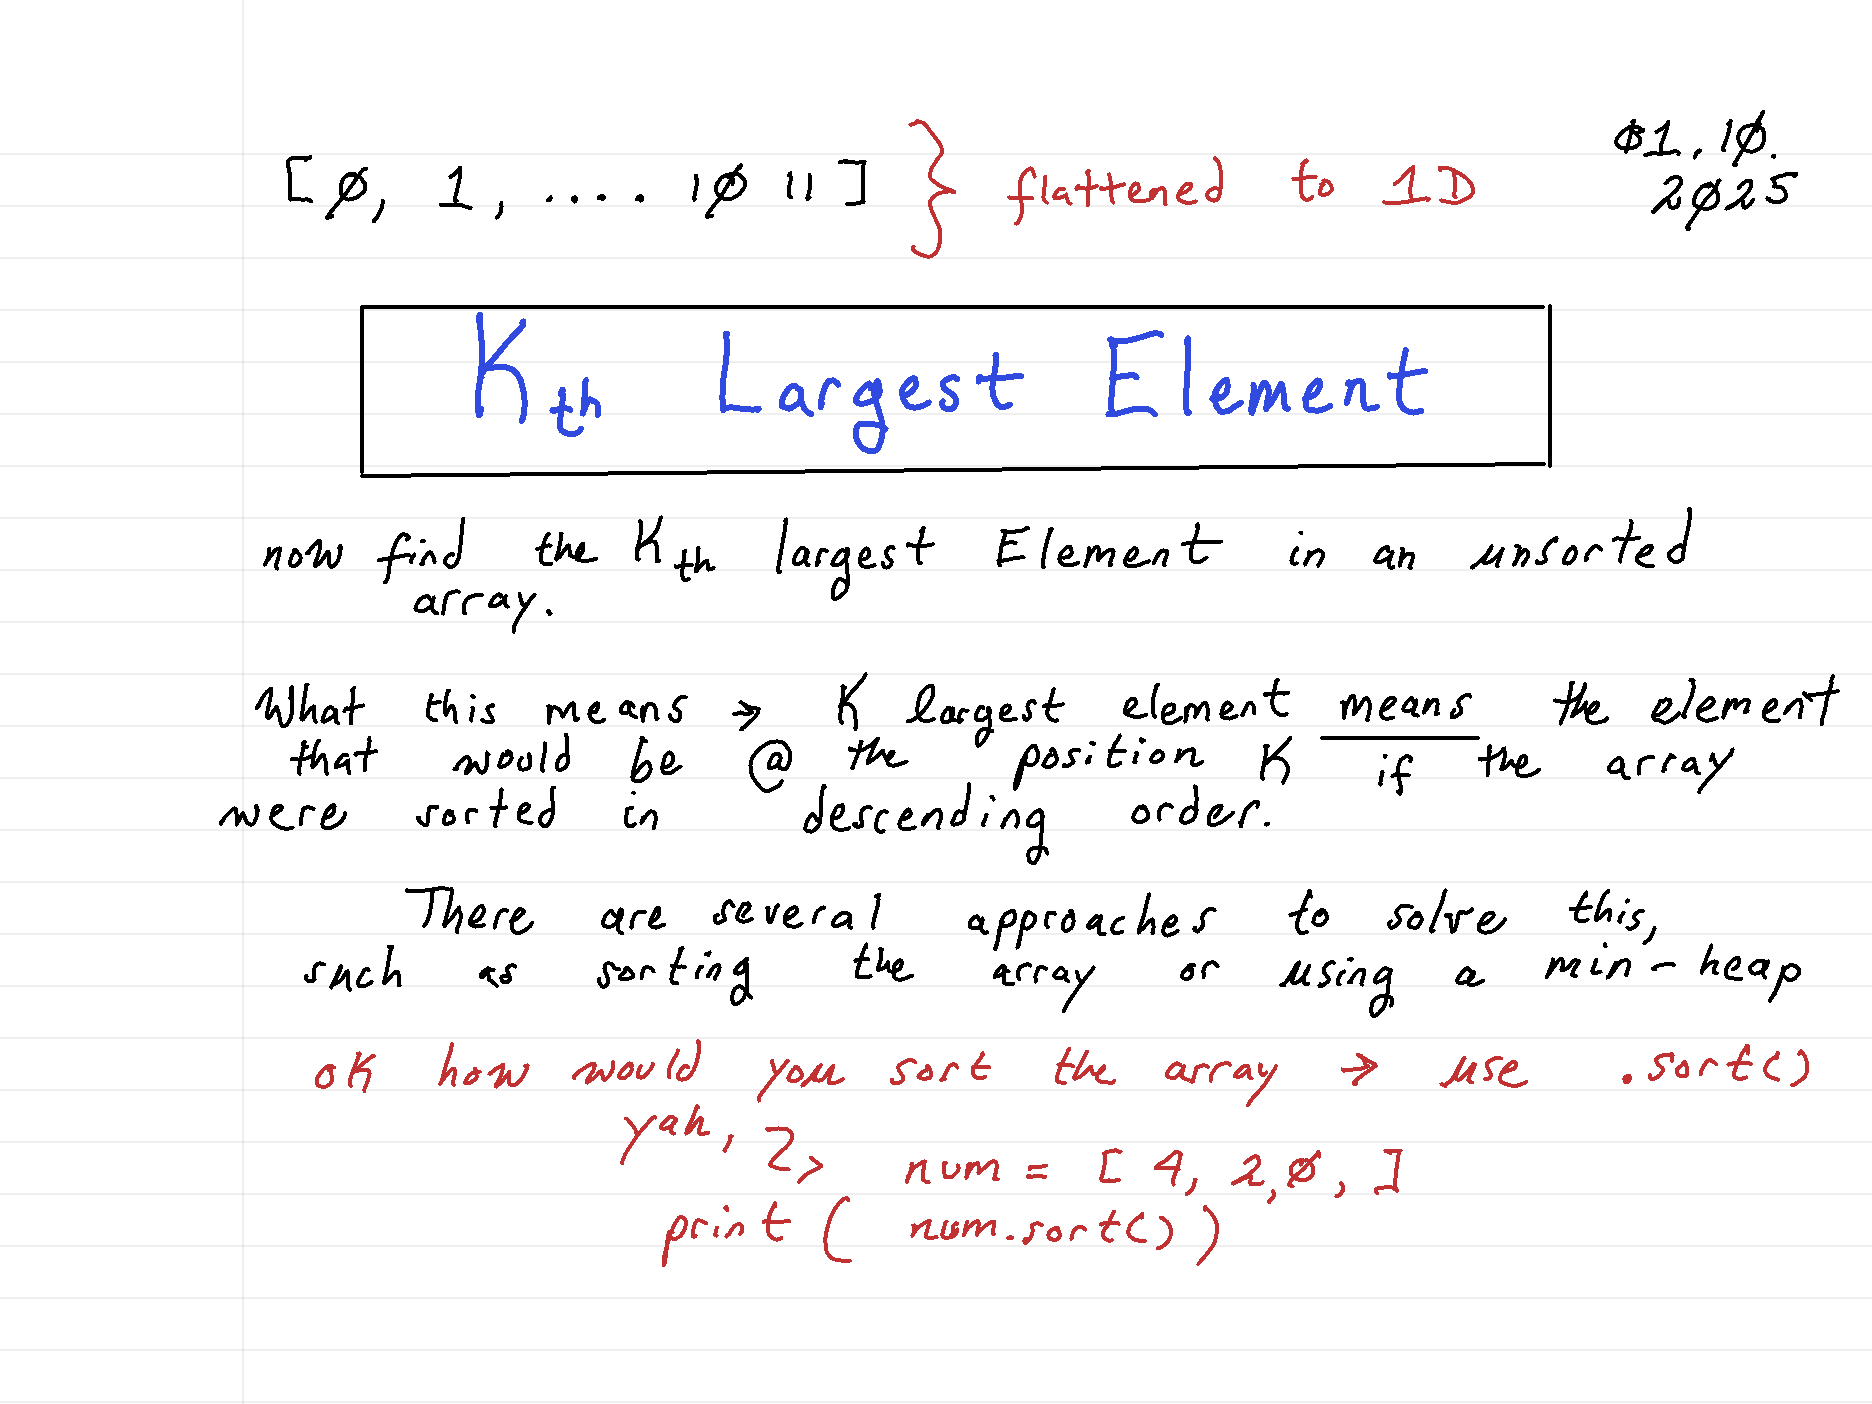 [ø, 1, .... 1ø 11] } flattened to 1D
ø1.1ø.
2ø25
Kth Largest Element
now find the Kth largest Element in an unsorted
array.
What this means → K largest element means the element
that would be @ the position K if the array
were sorted in descending order.
There are several approaches to solve this,
such as sorting the array or using a min-heap
oK how would you sort the array → use .sort()
yah,
num = [4, 2, ø, ]
print ( num.sort() )